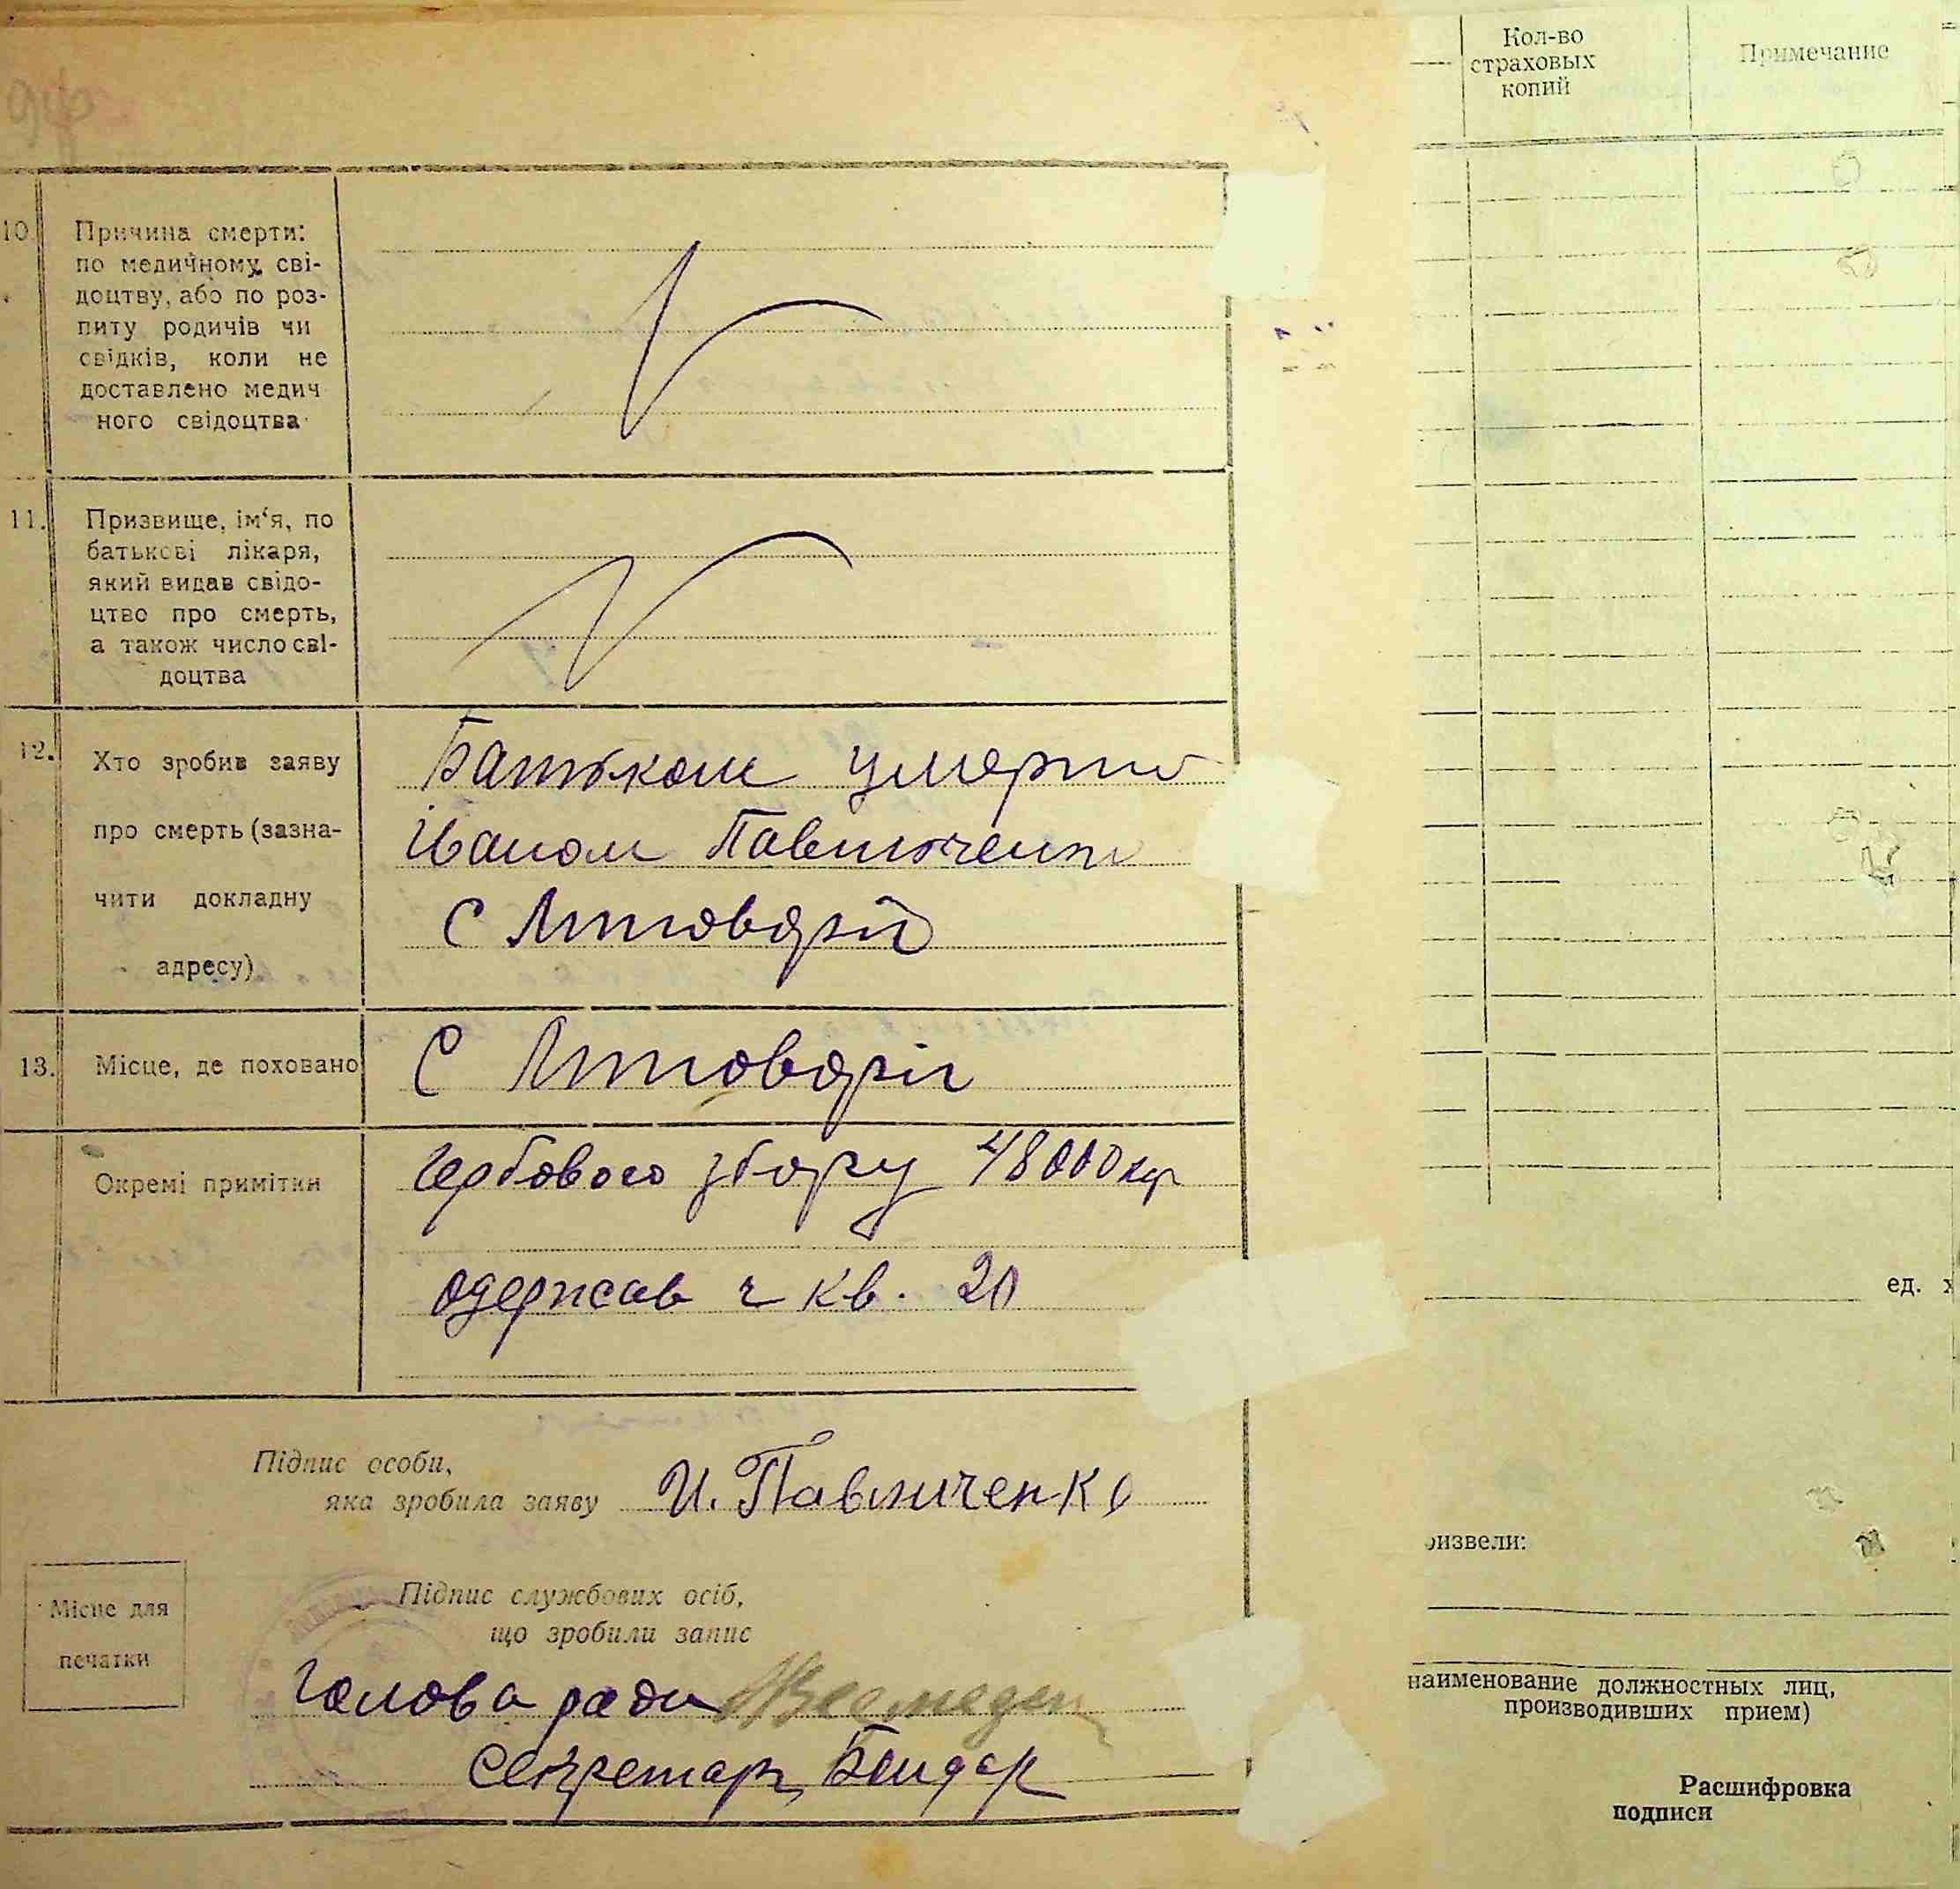 10.
Причина смерти:
по медичному сві-
доцтву, або по роз-
питу родичів чи
свідків, коли не
доставлено медич
ного свідоцтва
11.
Призвище, ім‘я, по
батькові лікаря,
який видав свідо-
цтво про смерть,
а також число сві-
доцтва
12.
Хто зробив заяву
про смерть (зазна-
чити докладну
адресу)
Батьком умерто
Іваном
С
13.
Місце, де поховано
С
Окремі примітки
Гербового збору 48000 кр
одержав ч кв. 20
Підпис особи,
яка зробила заяву
И. Павличенко
Місце для
печатки
Підпис службових осіб,
що зробили запис
Голова ради
Секретарь Бондар
Кол-во
страховых
копий
Примечание
ед. х
оизвели:
наименование должностных лиц,
производивших прием)
Расшифровка
подписи